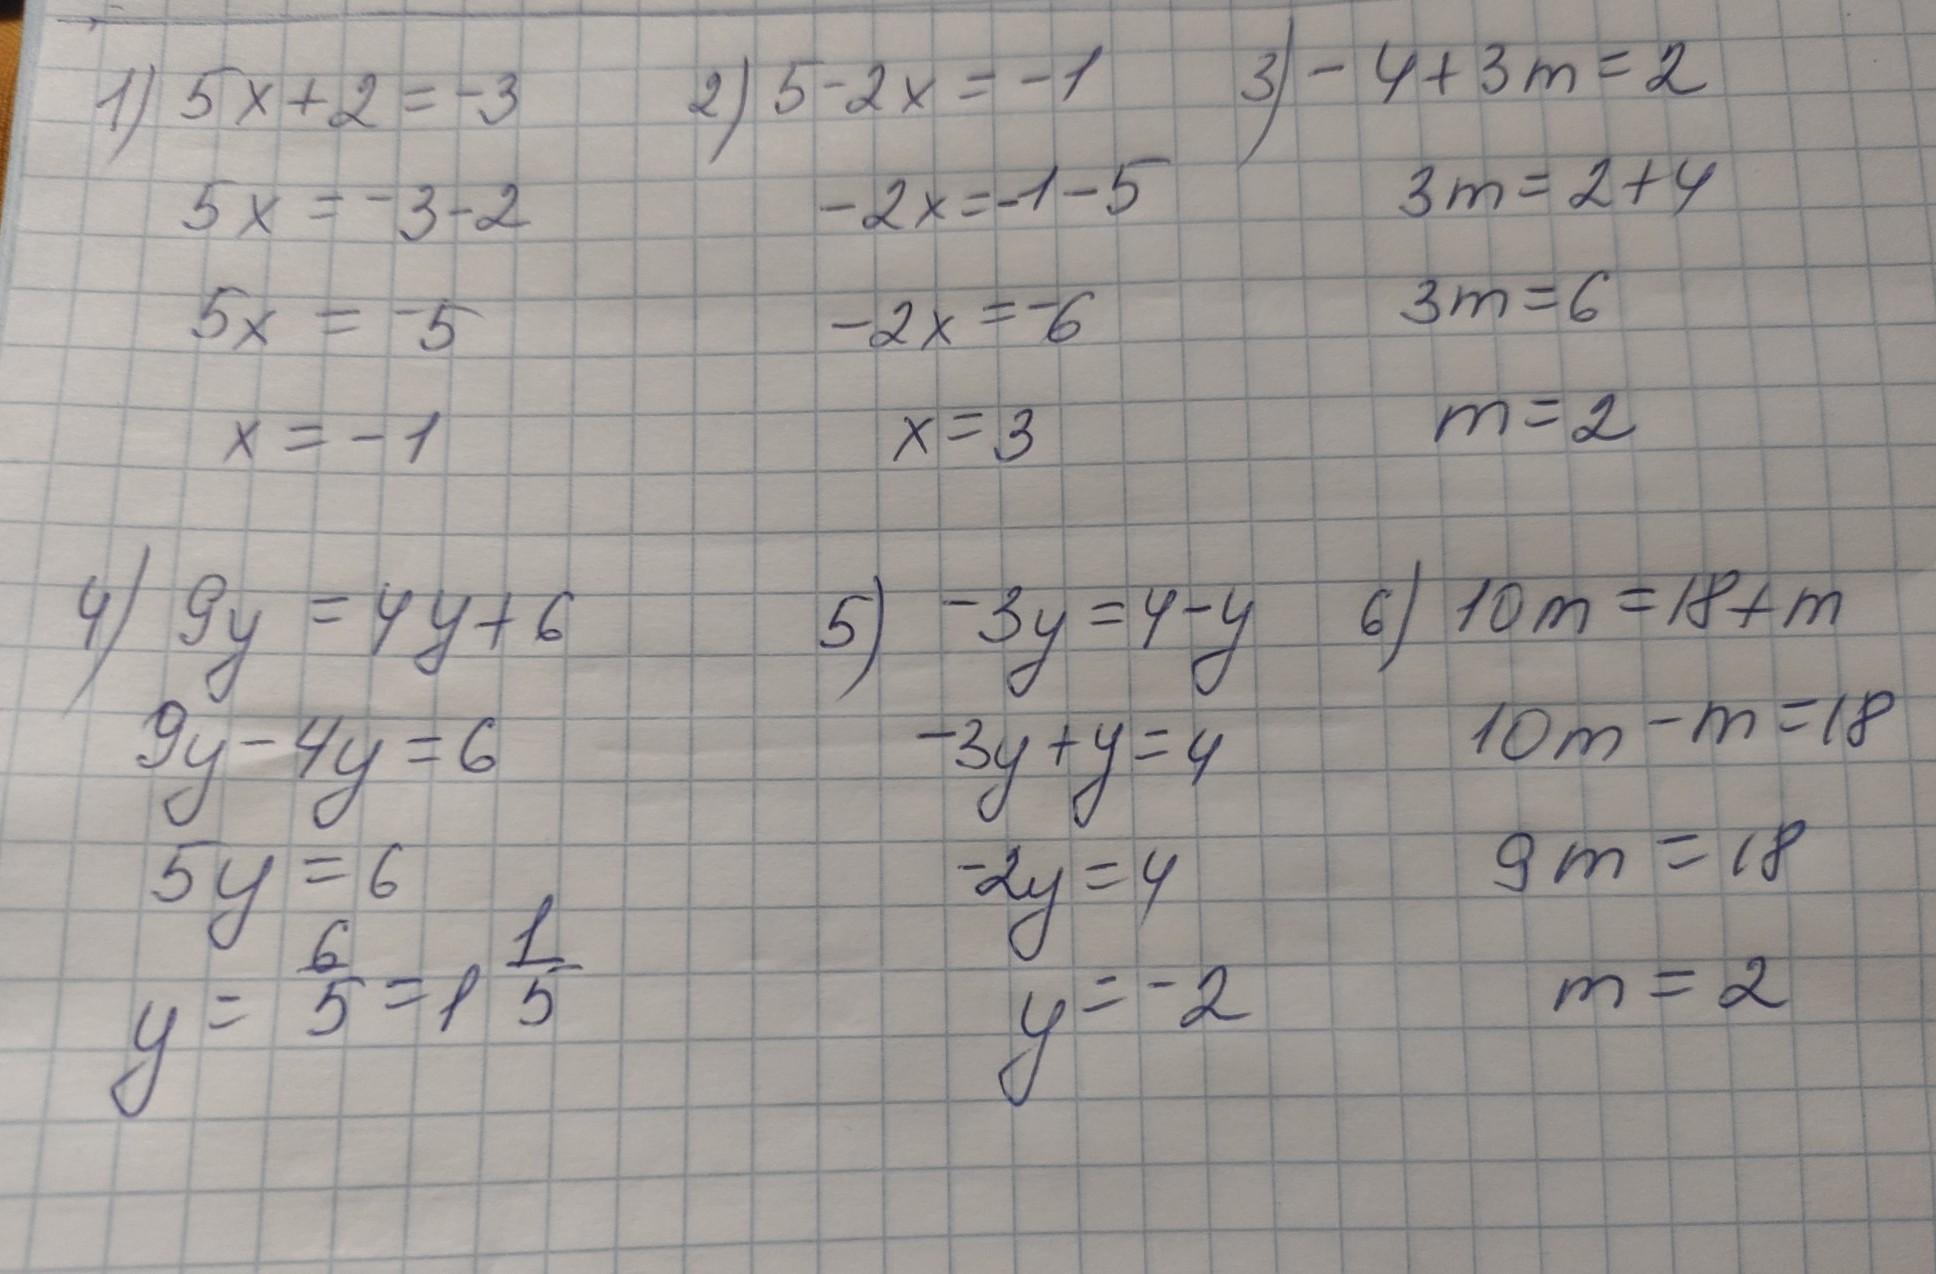 1) 5x+2=-3
5x=-3-2
5x=-5
x=-1
2) 5-2x=-1
-2x=-1-5
-2x=-6
x=3
3) -4+3m=2
3m=2+4
3m=6
m=2
4) 9y=4y+6
9y-4y=6
5y=6
y=6/5=1 1/5
5) -3y=4-y
-3y+y=4
-2y=4
y=-2
6) 10m=18+m
10m-m=18
9m=18
m=2